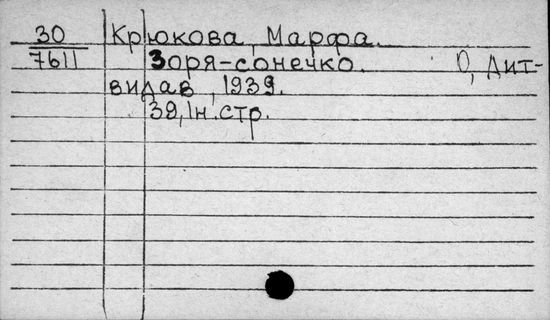 30 Крюкова, Марфа.
7611 Зоря-сонечко. О, Дит-
видав, 1939.
39, Iн. стр.